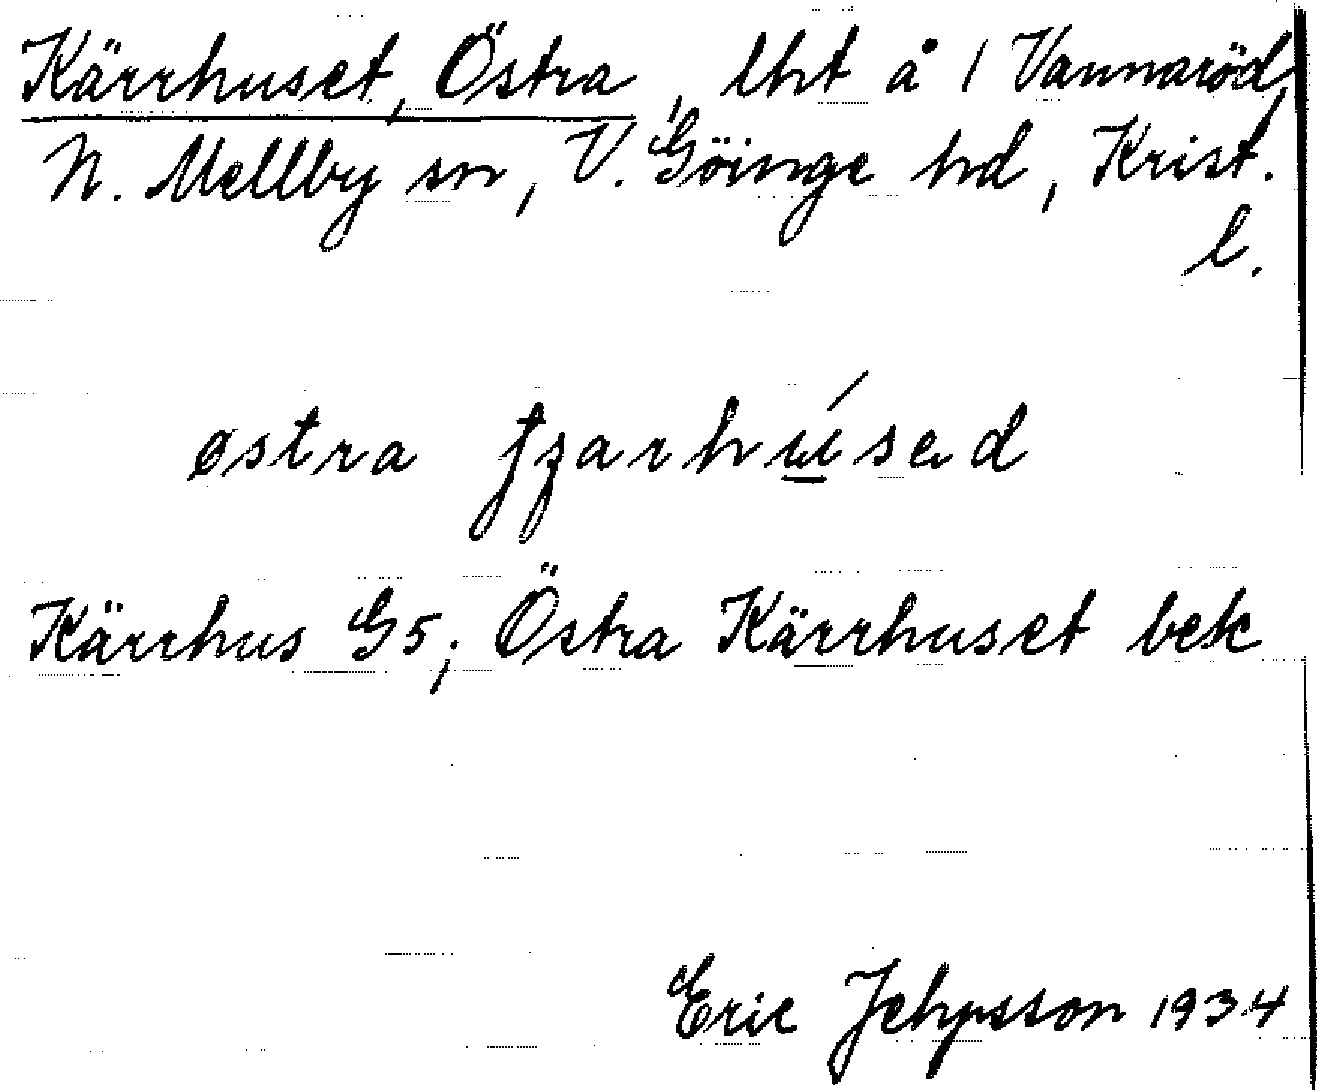 Kärrhuset, Östra, lht å 1 Vannaröd,
N. Mellby sn, V. Göinge hd, Krist.
l.
østra
Kärrhus G5; Östra Kärrhuset bek
Eric 1934